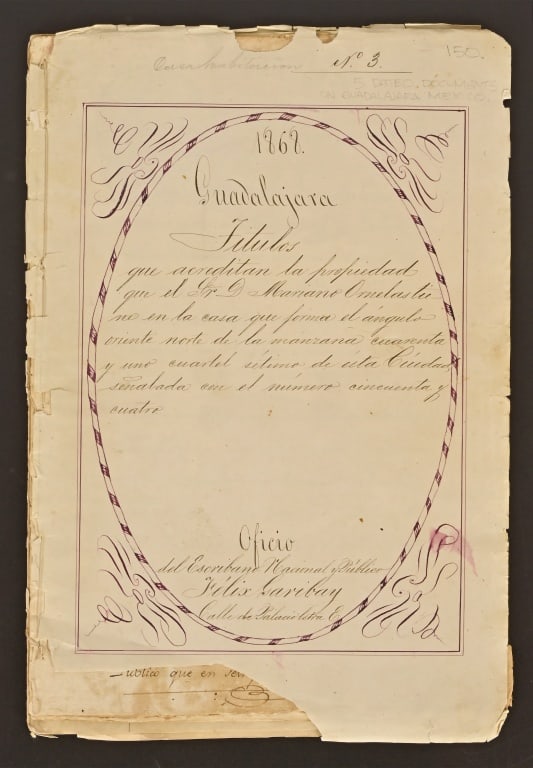 Casa habitacion Nº 3.
150.
5 DATED, DOCUMENTS
GUADALAJARA MEXICO.
1868.
Guadalajara
Titulos
que acreditan la propiedad
que el Sr D Mariano Ornelas tie
ne en la casa que forma el angulo
oriente norte de la manzana cuarenta
y uno cuartel sétimo de ésta Ciudad
señalada con el numero cincuenta y
cuatro
Oficio
del Escribano Nacional y Público
Félix Garibay
Calle de Palacio letra E.
ublico que en